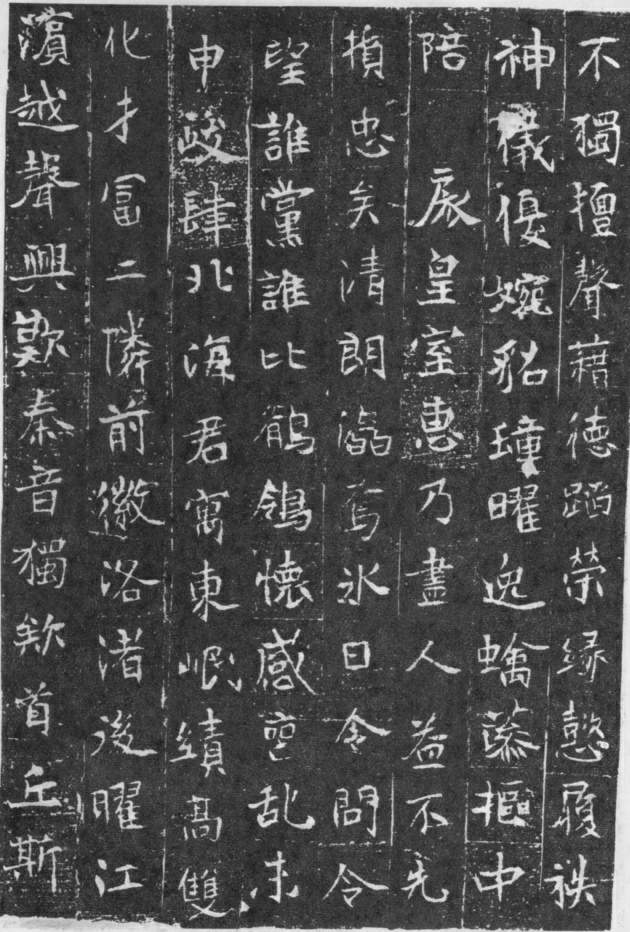 不獨擅聲藉德蹈榮緣懿履袟
神儀優婉貂璯曜逸蟾蔭摳中
陪　宸皇室惠乃盡人益不先
損忠矣清朗㵢焉氷日令問令
望誰黨誰比鶺鴒懷感喪乱未
申啟肆北海君寓東岷績髙雙
化才冨二隣前徽洛渚後曜江
濵越聲興歎秦音獨欸首丘斯